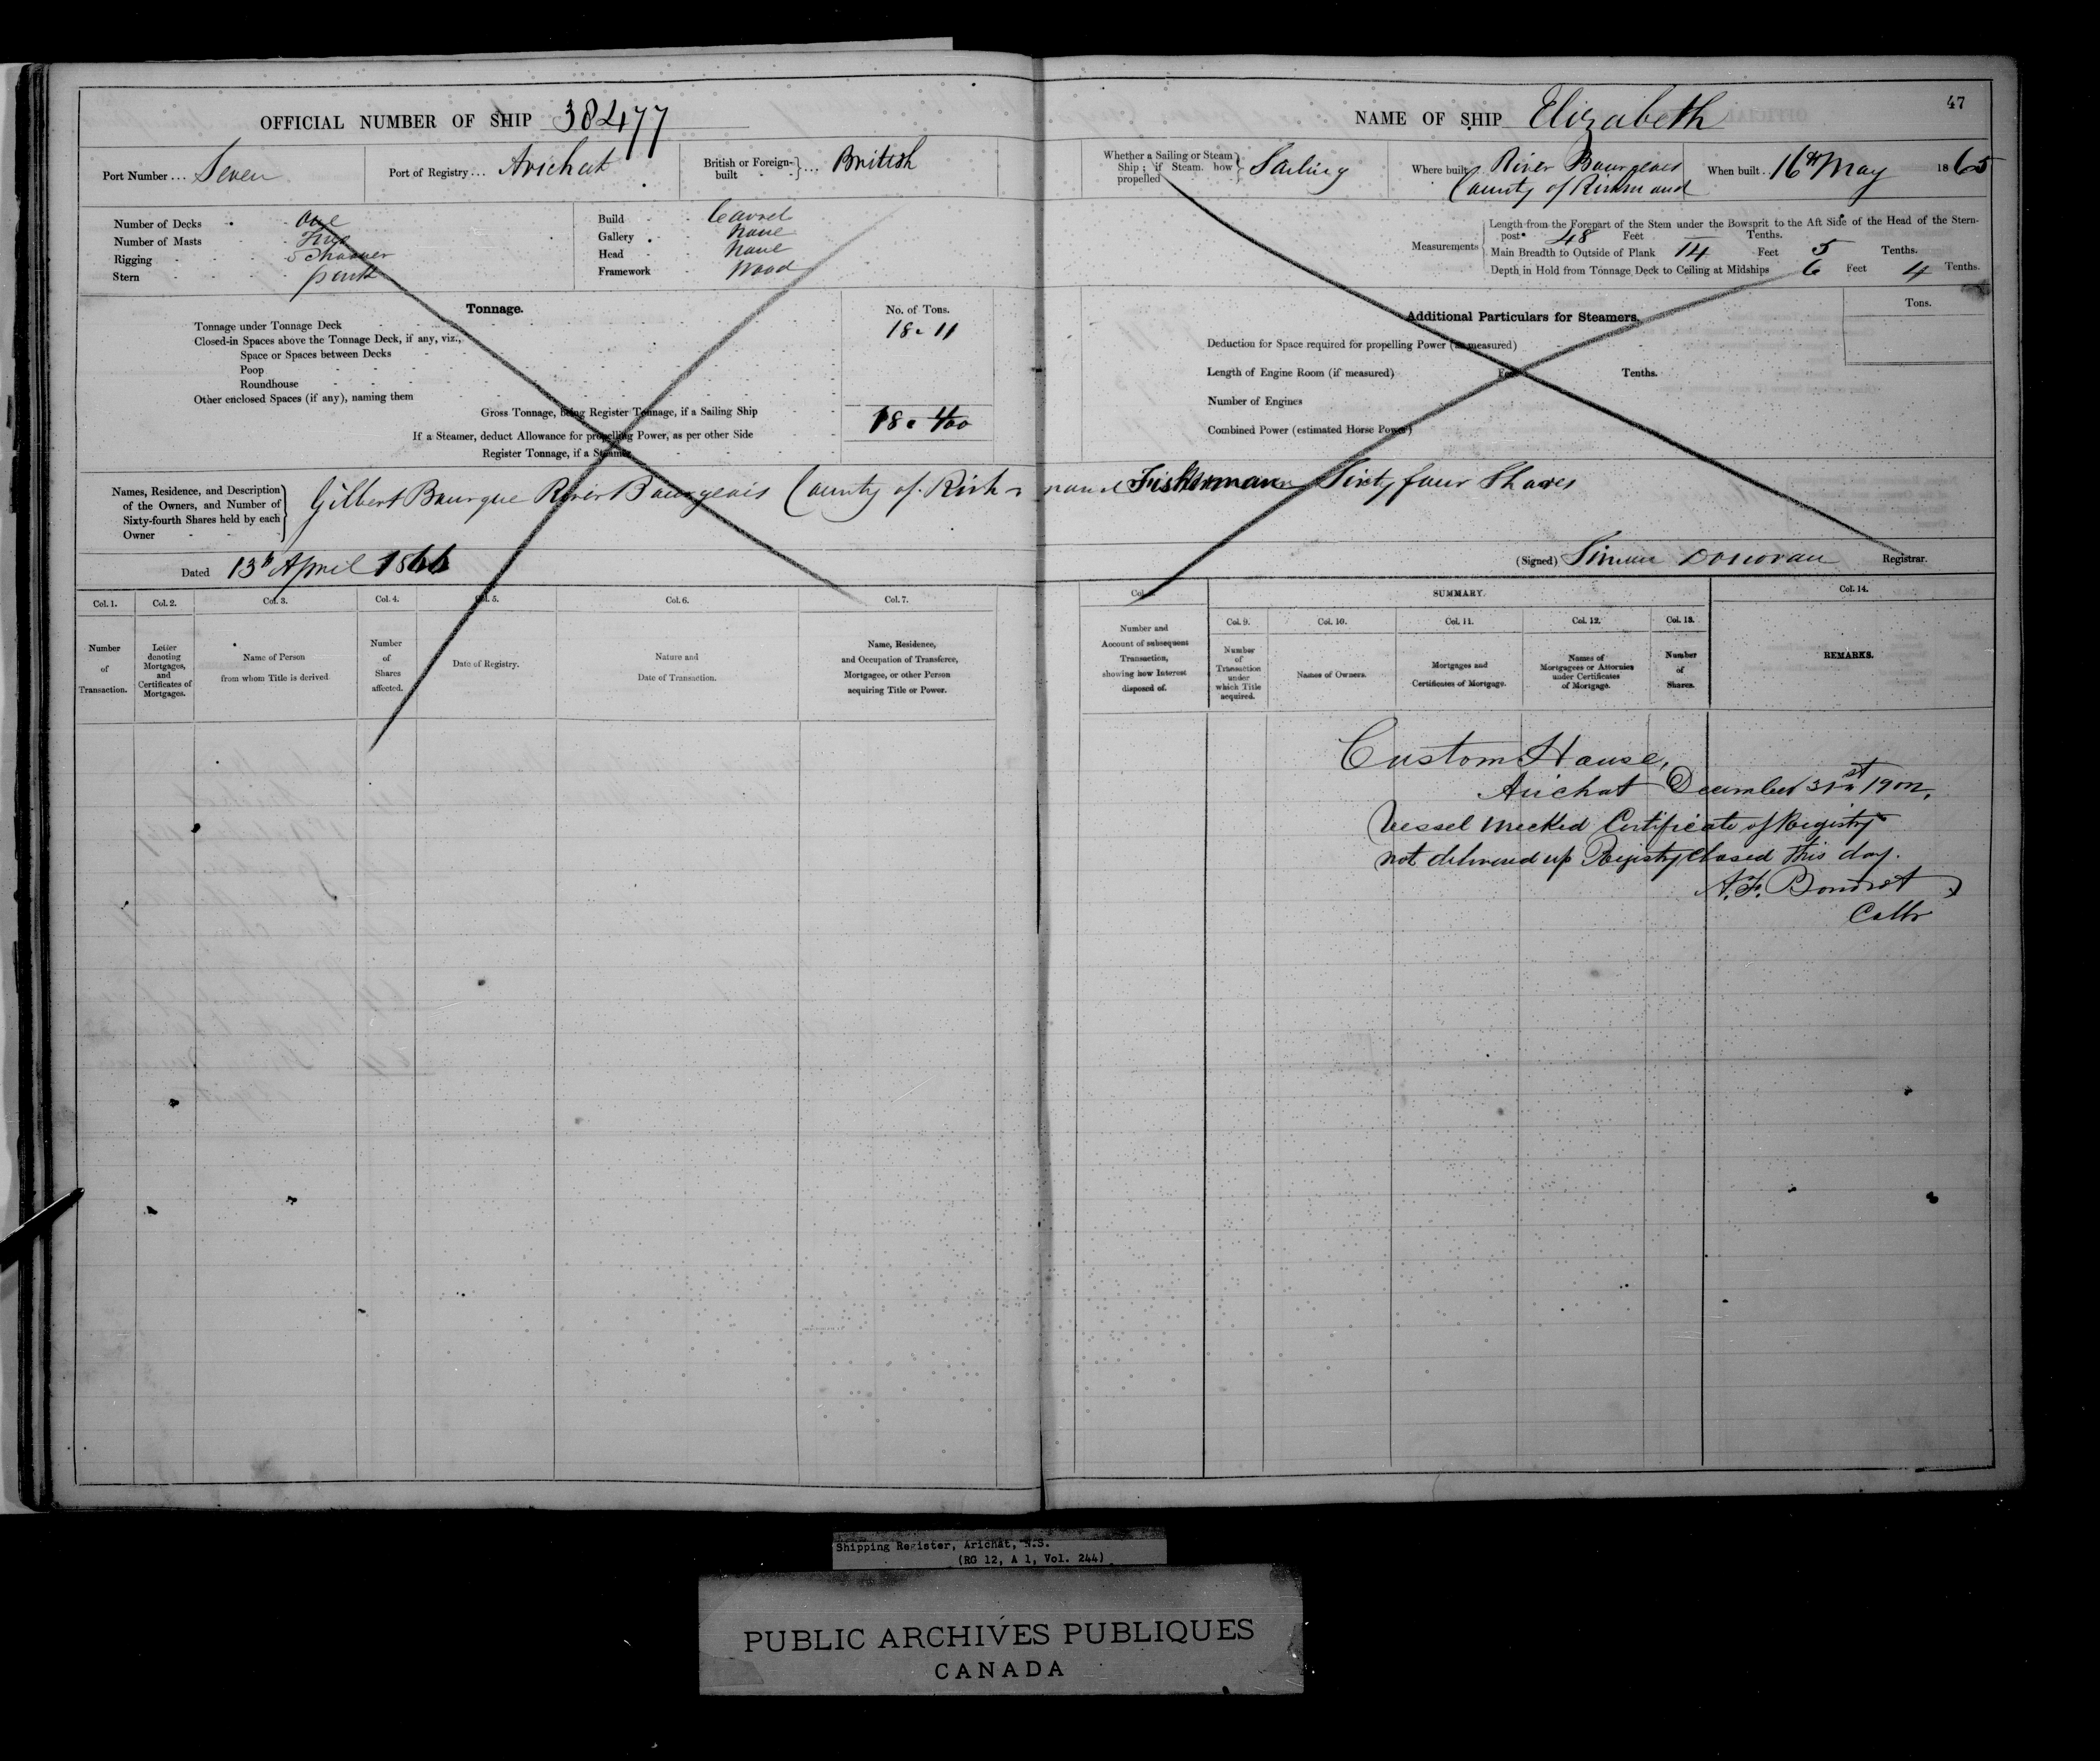 47
OFFICIAL NUMBER OF SHIP 38477
NAME OF SHIP Elizabeth
Port Number ... Seven
Port of Registry ... Arichat
British or Foreign-built ... British
Whether a Sailing or Steam Ship; if Steam, how propelled Sailing
Where built River Bourgeois County of Richmond
When built .. 16th May 1865
Number of Decks One
Number of Masts Two
Rigging Schooner
Stern
Build Carvel
Gallery None
Head None
Framework Wood
Measurements
Length from the Forepart of the Stem under the Bowsprit to the Aft Side of the Head of the Stern-
post 48 Feet Tenths.
Main Breadth to Outside of Plank 14 Feet 5 Tenths.
Depth in Hold from Tonnage Deck to Ceiling at Midships 6 Feet 4 Tenths.
Tonnage.
No. of Tons.
Tonnage under Tonnage Deck 18.11
Closed-in Spaces above the Tonnage Deck, if any, viz.,
Space or Spaces between Decks
Poop
Roundhouse
Other enclosed Spaces (if any), naming them
Gross Tonnage, being Register Tonnage, if a Sailing Ship
If a Steamer, deduct Allowance for propelling Power, as per other Side
Register Tonnage, if a Steamer
Additional Particulars for Steamers.
Tons.
Deduction for Space required for propelling Power (as measured)
Length of Engine Room (if measured) Feet Tenths.
Number of Engines
Combined Power (estimated Horse Power)
Names, Residence, and Description
of the Owners, and Number of
Sixty-fourth Shares held by each
Owner
Gilbert Bourque River Bourgeois County of Richmond Fisherman Sixty four Shares
Dated 13th April 1866
(Signed) Simon Donovan Registrar.
Col. 1.
Col. 2.
Col. 3.
Col. 4.
Col. 5.
Col. 6.
Col. 7.
Col.
SUMMARY.
Col. 14.
Col. 9.
Col. 10.
Col. 11.
Col. 12.
Col. 13.
Number
of
Transaction.
Letter
denoting
Mortgages,
and
Certificates of
Mortgages.
Name of Person
from whom Title is derived
Number
of
Shares
affected.
Date of Registry.
Nature and
Date of Transaction.
Name, Residence,
and Occupation of Transferee,
Mortgagee, or other Person
acquiring Title or Power.
Number and
Account of subsequent
Transaction,
showing how Interest
disposed of.
Number
of
Transaction
under
which Title
acquired.
Names of Owners.
Mortgages and
Certificates of Mortgage.
Names of
Mortgagees or Attornies
under Certificates
of Mortgage.
Number
of
Shares.
REMARKS.
Custom House,
Arichat December 31st 1902.
Vessel wrecked Certificate of Registry
not delivered up Registry closed this day.
Collr
Shipping Register, Arichat, N.S.
(RG 12, A 1, Vol. 244)
PUBLIC ARCHIVES PUBLIQUES
CANADA